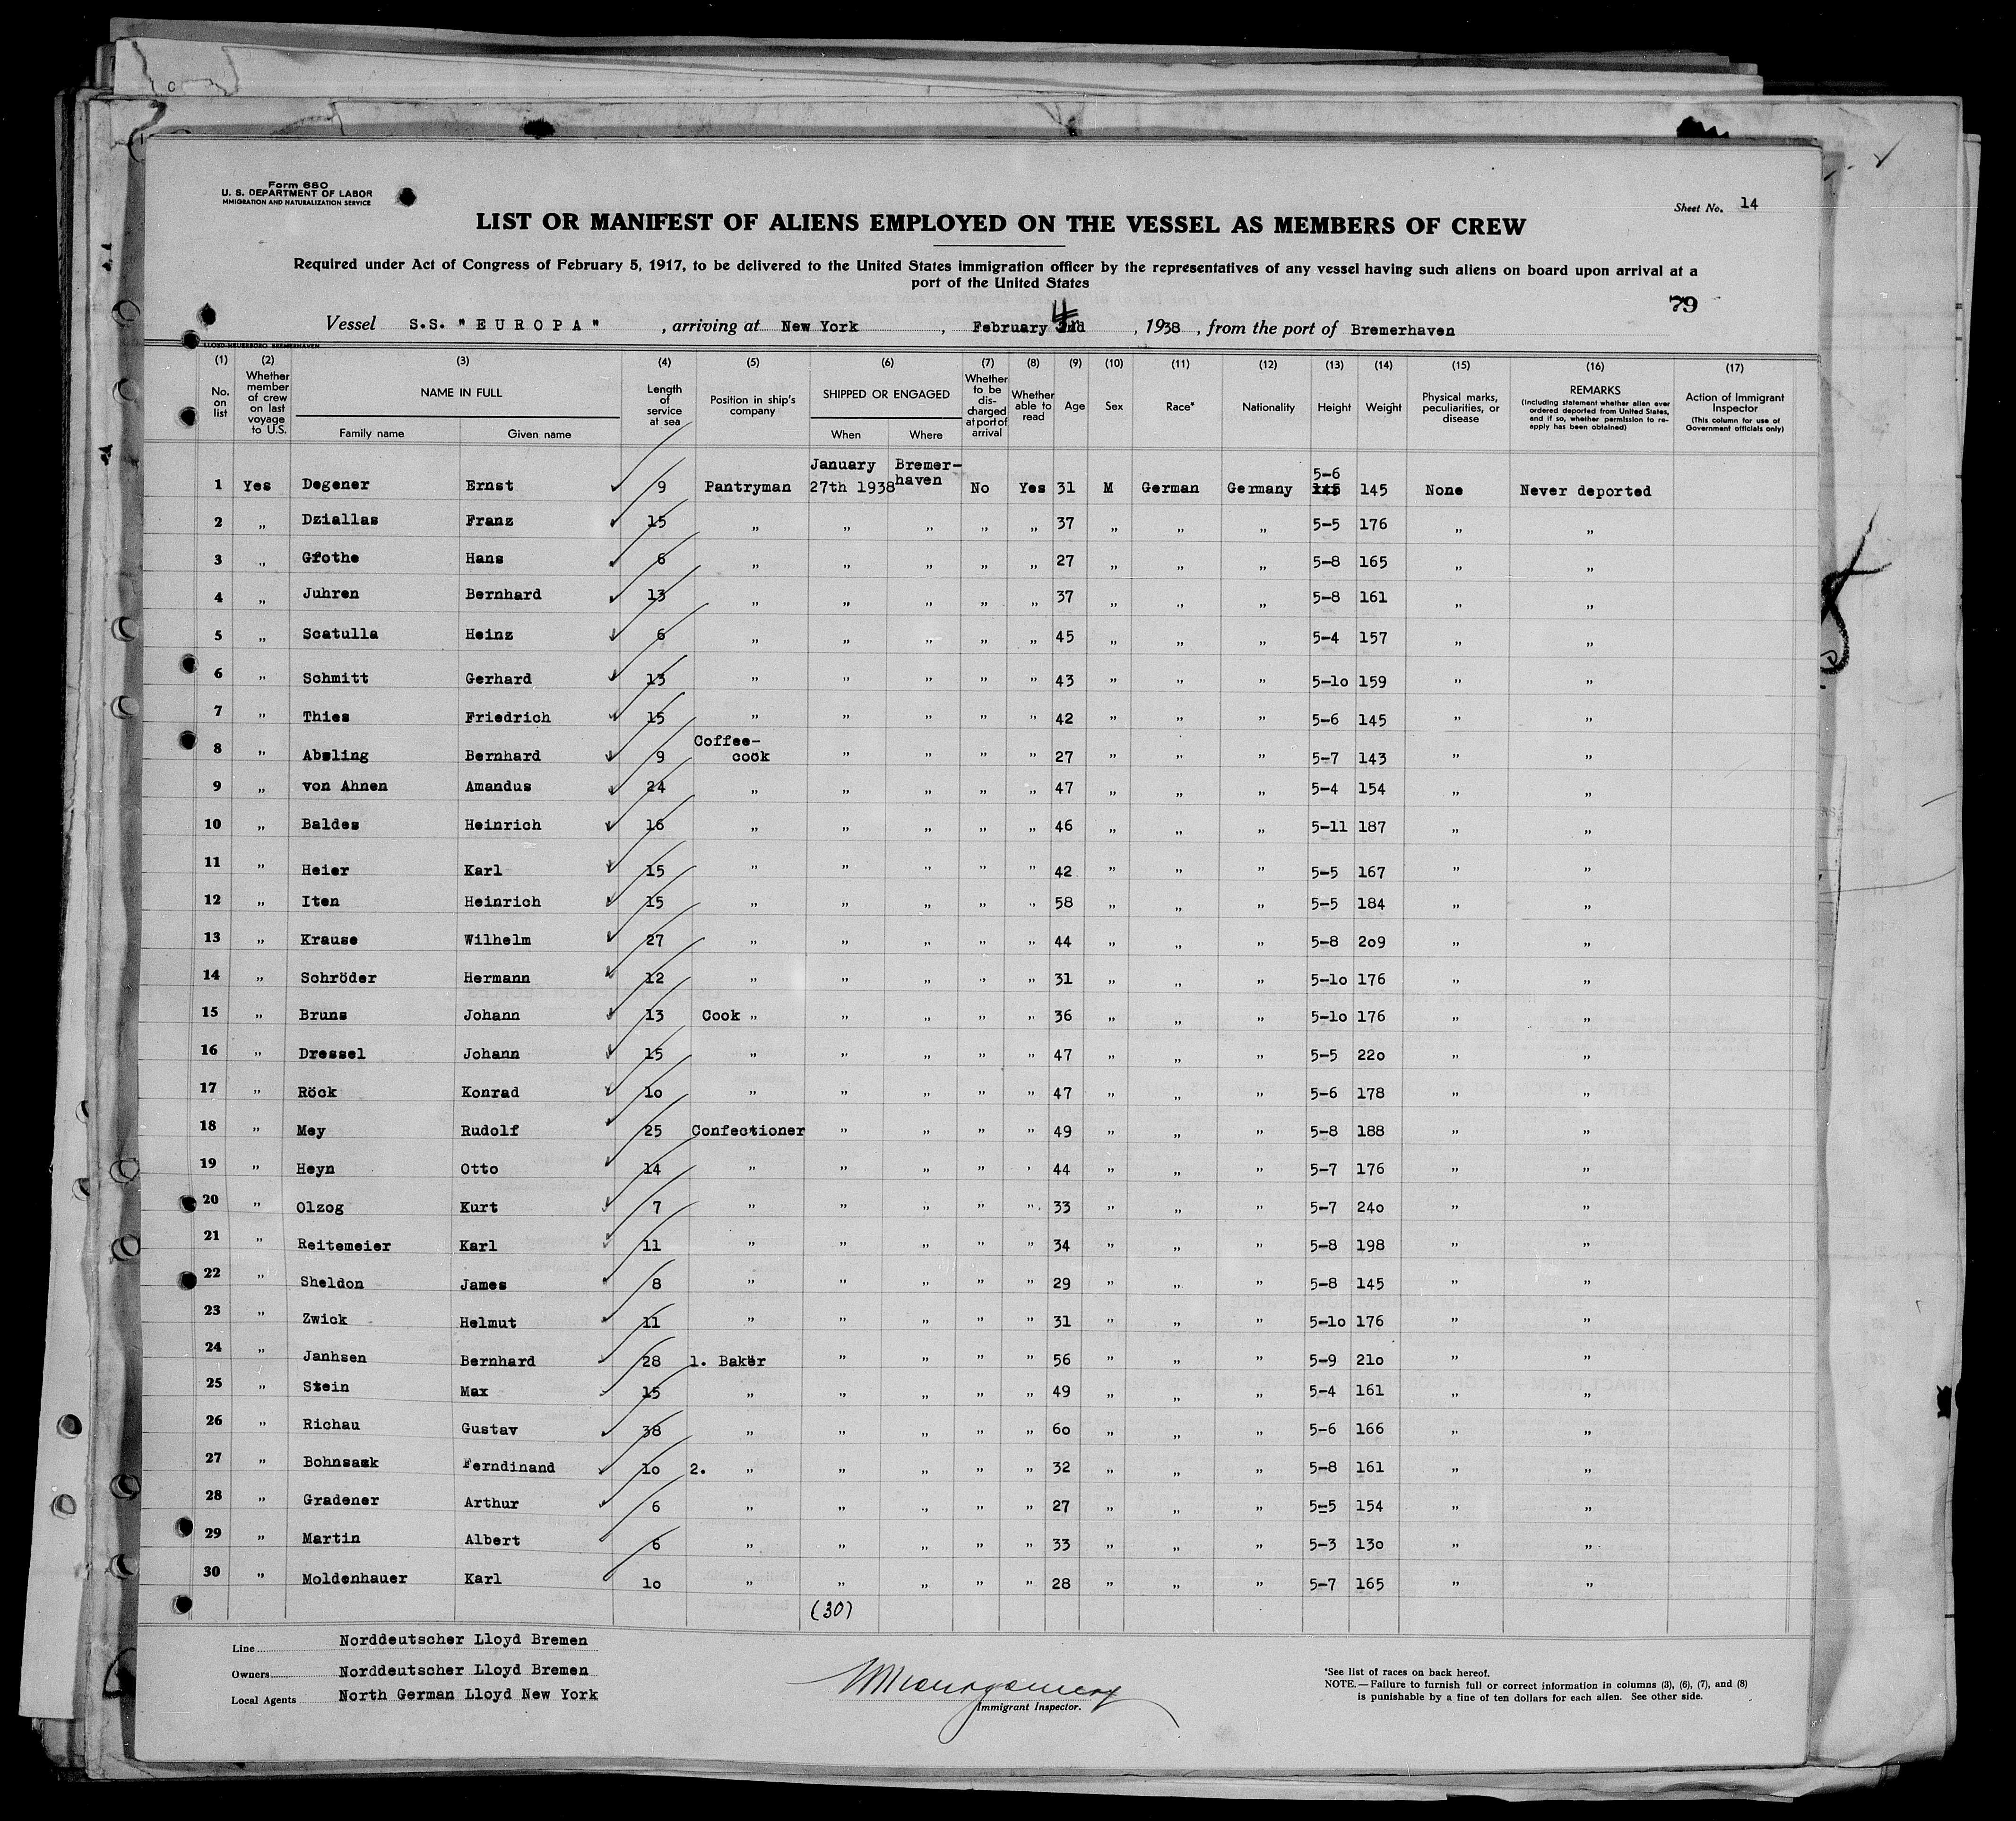 Form 680
U. S. DEPARTMENT OF LABOR
MMIGRATION AND NATURALIZATION SERVICE
Sheet No. 14
LIST OR MANIFEST OF ALIENS EMPLOYED ON THE VESSEL AS MEMBERS OF CREW
Required under Act of Congress of February 5, 1917, to be delivered to the United States immigration officer by the representatives of any vessel having such aliens on board upon arrival at a
port of the United States
79
Vessel S.S. "EUROPA", arriving at New York, February 4, 1938, from the port of Bremerhaven
(1) (2) (3) (4) (5) (6) (7) (8) (9) (10) (11) (12) (13) (14) (15) (16) (17)
No. on list
Whether member of crew on last voyage to U.S.
NAME IN FULL
Family name Given name
Length of service at sea
Position in ship's company
SHIPPED OR ENGAGED
When Where
Whether to be discharged at port of arrival
Whether able to read
Age
Sex
Race*
Nationality
Height
Weight
Physical marks, peculiarities, or disease
REMARKS
(Including statement whether alien ever ordered deported from United States, and if so, whether permission to re-apply has been obtained)
Action of Immigrant Inspector
(This column for use of Government officials only)
1 Yes Degener Ernst 9 Pantryman January 27th 1938 Bremer-haven No Yes 31 M German Germany 5-6 145 None Never deported
2 " Dziallas Franz 15 " " " " " 37 " " " 5-5 176 " "
3 " Grothe Hans 6 " " " " " 27 " " " 5-8 165 " "
4 " Juhren Bernhard 13 " " " " " 37 " " " 5-8 161 " "
5 " Scatulla Heinz 6 " " " " " 45 " " " 5-4 157 " "
6 " Schmitt Gerhard 13 " " " " " 43 " " " 5-10 159 " "
7 " Thies Friedrich 15 " " " " " 42 " " " 5-6 145 " "
8 " Absling Bernhard 9 Coffee-cook " " " " 27 " " " 5-7 143 " "
9 " von Ahnen Amandus 24 " " " " " 47 " " " 5-4 154 " "
10 " Baldes Heinrich 16 " " " " " 46 " " " 5-11 187 " "
11 " Heier Karl 15 " " " " " 42 " " " 5-5 167 " "
12 " Iten Heinrich 15 " " " " " 58 " " " 5-5 184 " "
13 " Krause Wilhelm 27 " " " " " 44 " " " 5-8 209 " "
14 " Schröder Hermann 12 " " " " " 31 " " " 5-10 176 " "
15 " Bruns Johann 13 Cook " " " " " 36 " " " 5-10 176 " "
16 " Dressel Johann 15 " " " " " 47 " " " 5-5 220 " "
17 " Röck Konrad 10 " " " " " 47 " " " 5-6 178 " "
18 " Mey Rudolf 25 Confectioner " " " " 49 " " " 5-8 188 " "
19 " Heyn Otto 14 " " " " " 44 " " " 5-7 176 " "
20 " Olzog Kurt 7 " " " " " 33 " " " 5-7 240 " "
21 " Reitemeier Karl 11 " " " " " 34 " " " 5-8 198 " "
22 " Sheldon James 8 " " " " " 29 " " " 5-8 145 " "
23 " Zwick Helmut 11 " " " " " 31 " " " 5-10 176 " "
24 " Janhsen Bernhard 28 1. Baker " " " " 56 " " " 5-9 210 " "
25 " Stein Max 15 " " " " " 49 " " " 5-4 161 " "
26 " Richau Gustav 38 " " " " " 60 " " " 5-6 166 " "
27 " Bohnsack Ferndinand 10 2. " " " " " 32 " " " 5-8 161 " "
28 " Gradener Arthur 6 " " " " " 27 " " " 5-5 154 " "
29 " Martin Albert 6 " " " " " 33 " " " 5-3 130 " "
30 " Moldenhauer Karl 10 " " " " " 28 " " " 5-7 165 " "
(30)
Line Norddeutscher Lloyd Bremen
Owners Norddeutscher Lloyd Bremen
Local Agents North German Lloyd New York
Immigrant Inspector.
*See list of races on back hereof.
NOTE.—Failure to furnish full or correct information in columns (3), (6), (7), and (8)
is punishable by a fine of ten dollars for each alien. See other side.